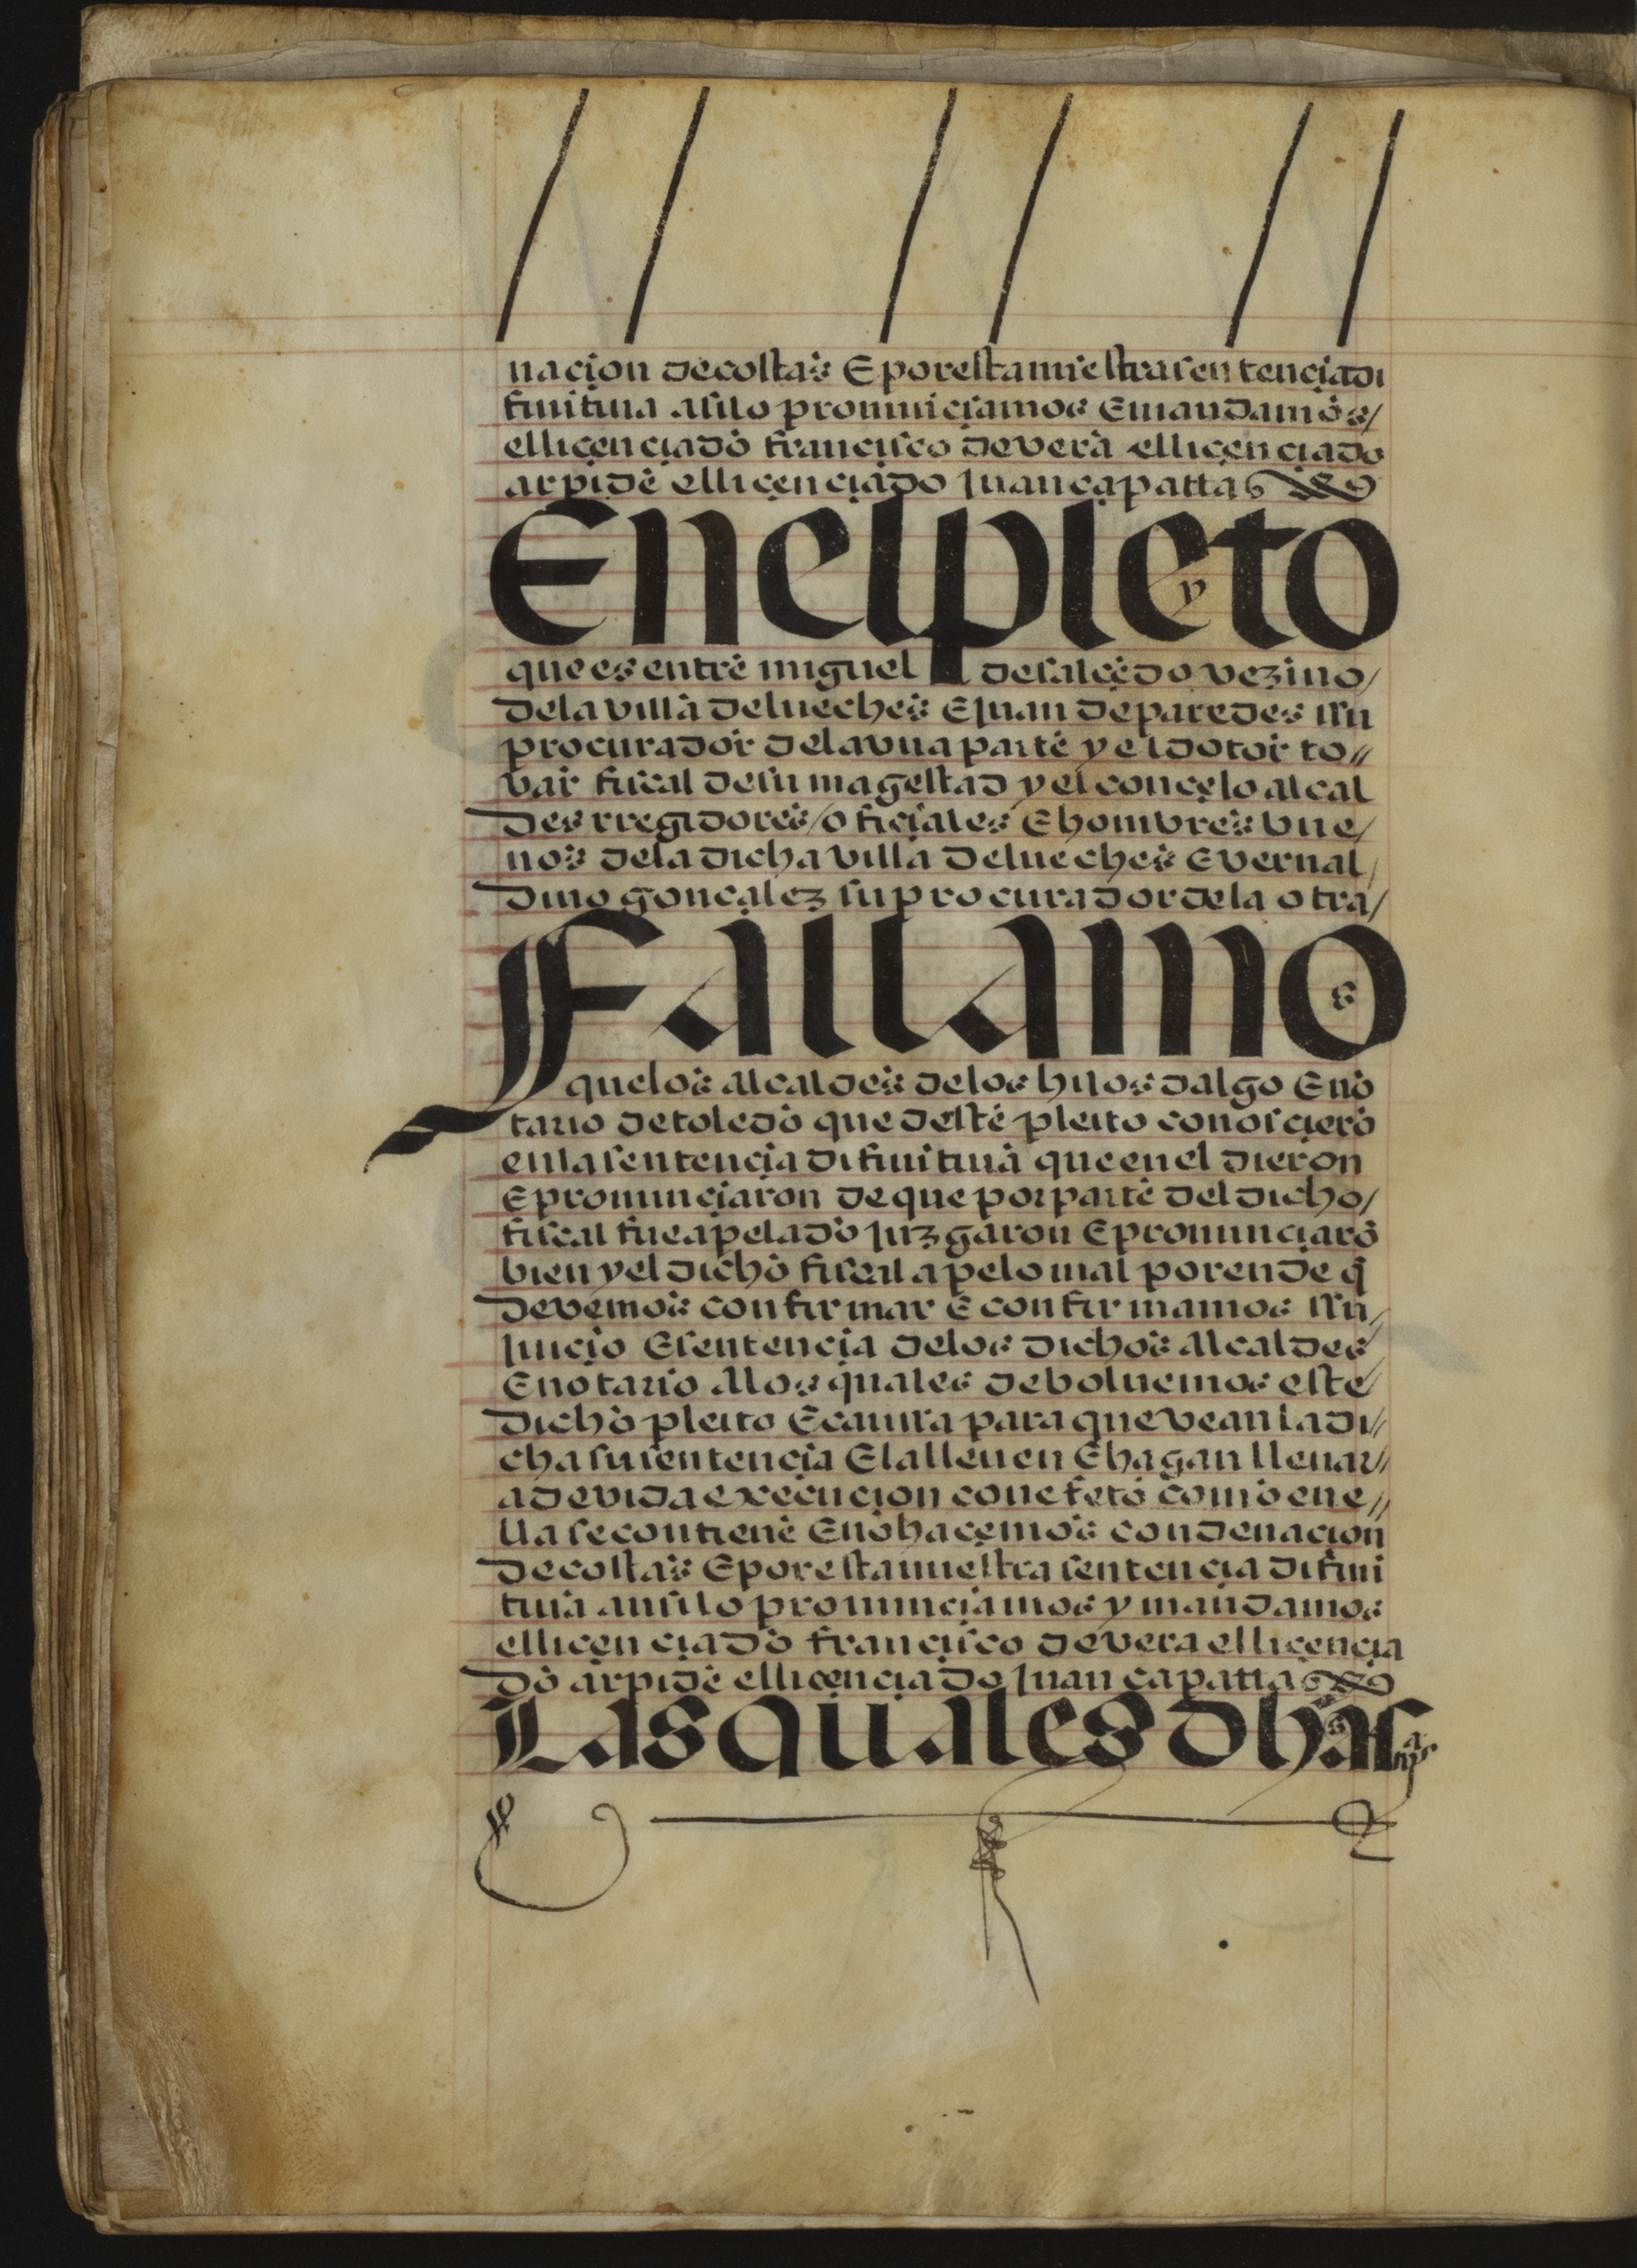 nacion de costas E por esta nuestra sentencia di
finitiua asilo pronunciamos E mandamos /
el licenciado francisco de vera el licenciado
arpide el licenciado Juan capatta
En el pleyto
que es entre miguel de salcedo vezino /
dela villa de lueches E Juan de paredes su
procurador dela vna parte y el dotor to //
var fiscal de su magestad y el concejo alcal
des rregidores / oficiales E hombres bue /
nos dela dicha villa de lueches E vernal
dino goncalez su procurador dela otra /
Fallamos
que los alcaldes delos hijos dalgo E nō
tario de toledo que deste pleito conoscierō
en la sentencia difinitiua que en el dieron
E pronunciaron de que por parte del dicho /
fiscal fue apelado Juzgaron E pronunciarō
bien y el dicho fiscal apelo mal por ende q̄
devemos confirmar E confirmamos su /
Juicio E sentencia delos dichos alcaldes
E notario alos quales deboluemos este
dicho pleito E caura para que vean la di //
cha su sentencia E la lleuen E hagan lleuar //
a devida execucion con efeto como ene //
lla se contiene E nō hacemos condenacion
de costas E por esta nuestra sentencia difini
tiuia ansilo pronunciamos y mandamos
el licenciado francisco de vera el licencia
do arpide el licenciado Juan capatta
Las quales dhas